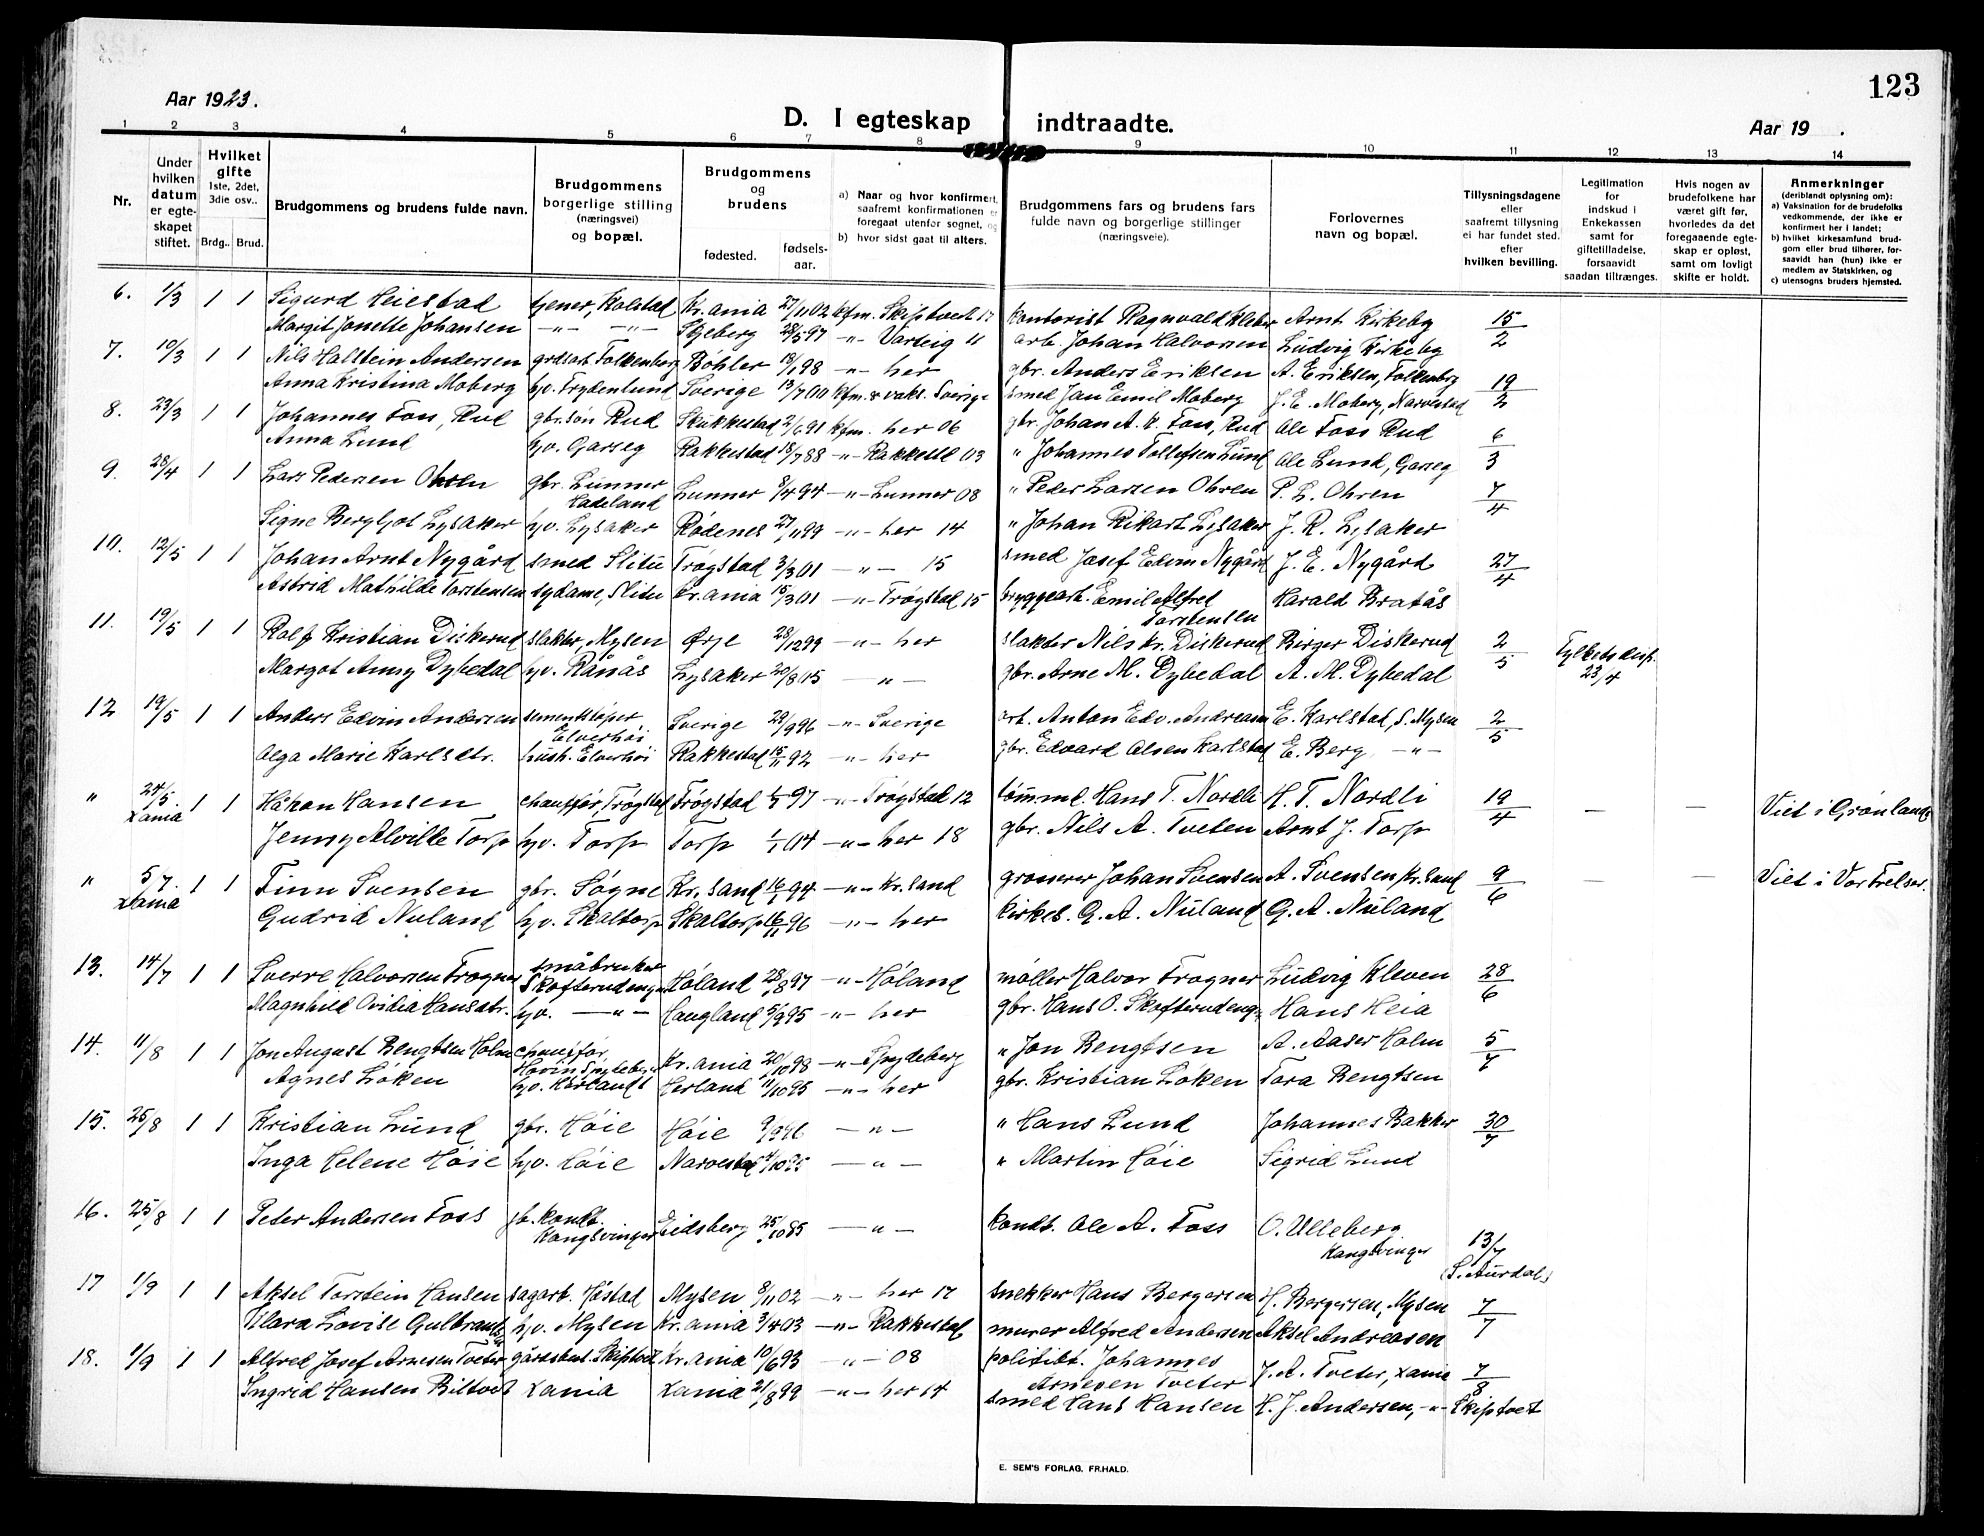 123
Aar 1923.
D. I egteskap indtraadte.
Aar 19 .
1 2 3 4 5 6 7 8 9 10 11 12 13 14
Nr.
Under hvilken datum er egte-skapet stiftet.
Hvilket gifte 1ste, 2det, 3die osv..
Brdg.. Brud.
Brudgommens og brudens fulde navn.
Brudgommens borgerlige stilling (næringsvei) og bopæl.
Brudgommens og brudens
fødested. fødsels-aar.
a) Naar og hvor konfirmert, saafremt konfirmationen er foregaat utenfor sognet, og
b) hvor sidst gaat til alters.
Brudgommens fars og brudens fars fulde navn og borgerlige stillinger (næringsveie).
Forlovernes navn og bopæl.
Tillysningsdagene eller saafremt tillysning ei har fundet sted. efter hvilken bevilling.
Legitimation for indskud i Enkekassen samt for giftetilladelse, forsaavidt saadan tiltrænges.
Hvis nogen av brudefolkene har været gift før, hvorledes da det foregaaende egte-skap er opløst, samt om lovligt skifte er holdt.
Anmerkninger (deriblandt oplysning om):
a) Vaksination for de brudefolks vedkommende, der ikke er konfirmert her i landet;
b) hvilket kirkesamfund brud-gom eller brud tilhører, for-saavidt han (hun) ikke er medlem av Statskirken, og
c) utensogns bruders hjemsted.
6. 1/3 1 1 Sigurd Heiestad tjener, Kolstad Kr.ania 27/11 02 kfm. Skiptvedt 17 kontorist Ragnvald Arnt Kirkeby 15/2
Margit Jonette Johansen –"– –"– Skjeberg 28/5 97 –"– Varteig 11 arb. Johan Halvorsen Ludvig Kirkeby
7. 10/3 1 1 Nils Hallstein Andersen grdsarb. Folkenborg Bøhler 18/1 98 –"– her gbr. Anders Eriksen A. Eriksen, Folkenborg 19/2
Anna Kristina Moberg hv. Frydenlund Sverige 13/7 00 kfm. & vaks. Sverige smed Jan Emil Moberg J. E. Moberg, Narvestad
8. 23/3 1 1 Johannes Foss, Rud gbr.søn Rud Slukkestad 2/6 91 kfm. her 06 gbr. Johan A. K. Foss, Rud Ole Foss Rud 6/3
Anna Lund hv. Garseg Rakkestad 18/7 88 –"– Rakkestd 03 " Johannes Tollefsen Lund Ole Lund, Garseg
9. 28/4 1 1 Lars Pedersen Ohren gbr. Lunner Hadeland Lunner 8/4 94 –"– Lunner 08 " Peder Larsen Ohren P. L. Ohren 7/4
Signe Bergljot Lysaker hv. Lysaker Rødenes 27/11 99 –"– her 14 " Johan Rikart Lysaker J. R. Lysaker
10. 12/5 1 1 Johan Arnt Nygård smed Slitu Trøgstad 3/3 01 –"– 15 smed Josef Edvin Nygård J. E. Nygård 27/4
Astrid Mathilde Torstensen sydame, Slitu Kr.ania 15/3 01 –"– Trøgstad 15 bryggearb. Emil Alfred Torstensen Harald Bratås
11. 19/5 1 1 Rolf Kristian Diskerud slakter, Mysen Ørje 28/12 99 –"– her slakter Nils Kr. Diskerud Birger Diskerud 2/5 Fylkets disp. 23/4
Margot Anny Dybedal hv. Rånås Lysaker 20/8 05 –"– gbr. Arne M. Dybedal A. M. Dybedal
12 19/5 1 1 Anders Edvin Andersen sementstøper, Elverhøi Sverige 29/9 96 –"– Sverige arb. Anton Edv. Andreasen E. Karlstad, S. Mysen 2/5
Olga Marie Karlsdtr. hush. Elverhøi Rakkestad 15/11 92 –"– her gbr. Edvard Olsen Karlstad E. Berg –"–
" 24/5. Xania 1 1 Håkon Hansen chauffør, Trøgstad Trøgstad 1/7 97 –"– Trøgstad 12 tømmml. Hans T. Nordli H. T. Nordli 19/4 – – Viet i Grønlands
Jenny Alvilde Torp hv. Torp Torp 1/1 04 –"– her 18 gbr. Nils A. Tveten Arnt J. Torp
" 5/7. Xania 1 1 Finn Svensen gbr. Søgne Kr.sand 16/1 94 –"– Kr.sand grosserer Johan Svensen A. Svensen Kr.sand 9/6 – – Viet i Vor Frelser.
Gudrid Nuland hv. Skaltorp Skaltorp 16/11 96 –"– her Kirkes. G. A. Nuland G. A. Nuland
13. 14/7 1 1 Sverre Halvorsen Frogner småbruker Skofterudenga Høland 28/8 97 –"– Høland møller Halvor Frogner Ludvig Kleven 28/6
Magnhild Ovidia Hansdtr. hv. –"– Haugland 5/9 95 –"– her gbr. Hans O. Skofterudeng. Hans Heia
14. 11/8 1 1 Jon August Bengtsen Holm chauffør, Hovin Spydeberg Kr.ania 20/10 98 –"– Spydeberg " Jon Bengtsen A. Aaser Holm 5/7
Agnes Løken hv. Hærland Herland 11/10 95 –"– her gbr. Kristian Løken Tora Bengtsen
15. 25/8 1 1 Kristian Lund gbr. Høie Høie 9/9 96 –"– " Hans Lund Johannes Bakker 30/7
Inga Helene Høie hv. Høie Narvestad 4/10 95 –"– " Martin Høie Sigrid Lund
16. 25/8 1 1 Peter Andersen Foss jb.kondt. Kongsvinger Eidsberg 25/10 85 –"– kondt. Ole A. Foss O. Ulleberg Kongsvinger 13/7 (S. Aurdal)
17 1/9 1 1 Aksel Torstein Hansen sagarb. Høstad Mysen 8/11 02 –"– her 17 snekker Hans Bergersen H. Bergersen, Mysen 7/7
Klara Lovise Gulbrands hv. Mysen Kr.ania 3/4 03 –"– Rakkestad murer Alfred Andersen Aksel Andreasen
18. 1/9 1 1 Alfred Josef Arnesen Tveter gårdsbest. Skiptvet Kr.ania 10/6 93 –"– 08 politibt. Johannes Arnesen Tveter J. A. Tveter, Xania 7/8
Ingrid Hansen Biltvet Xania Xania 21/8 99 –"– her 14 smed Hans Hansen H. J. Andersen, –"– Skiptvet
E. SEM'S FORLAG. FR.HALD.